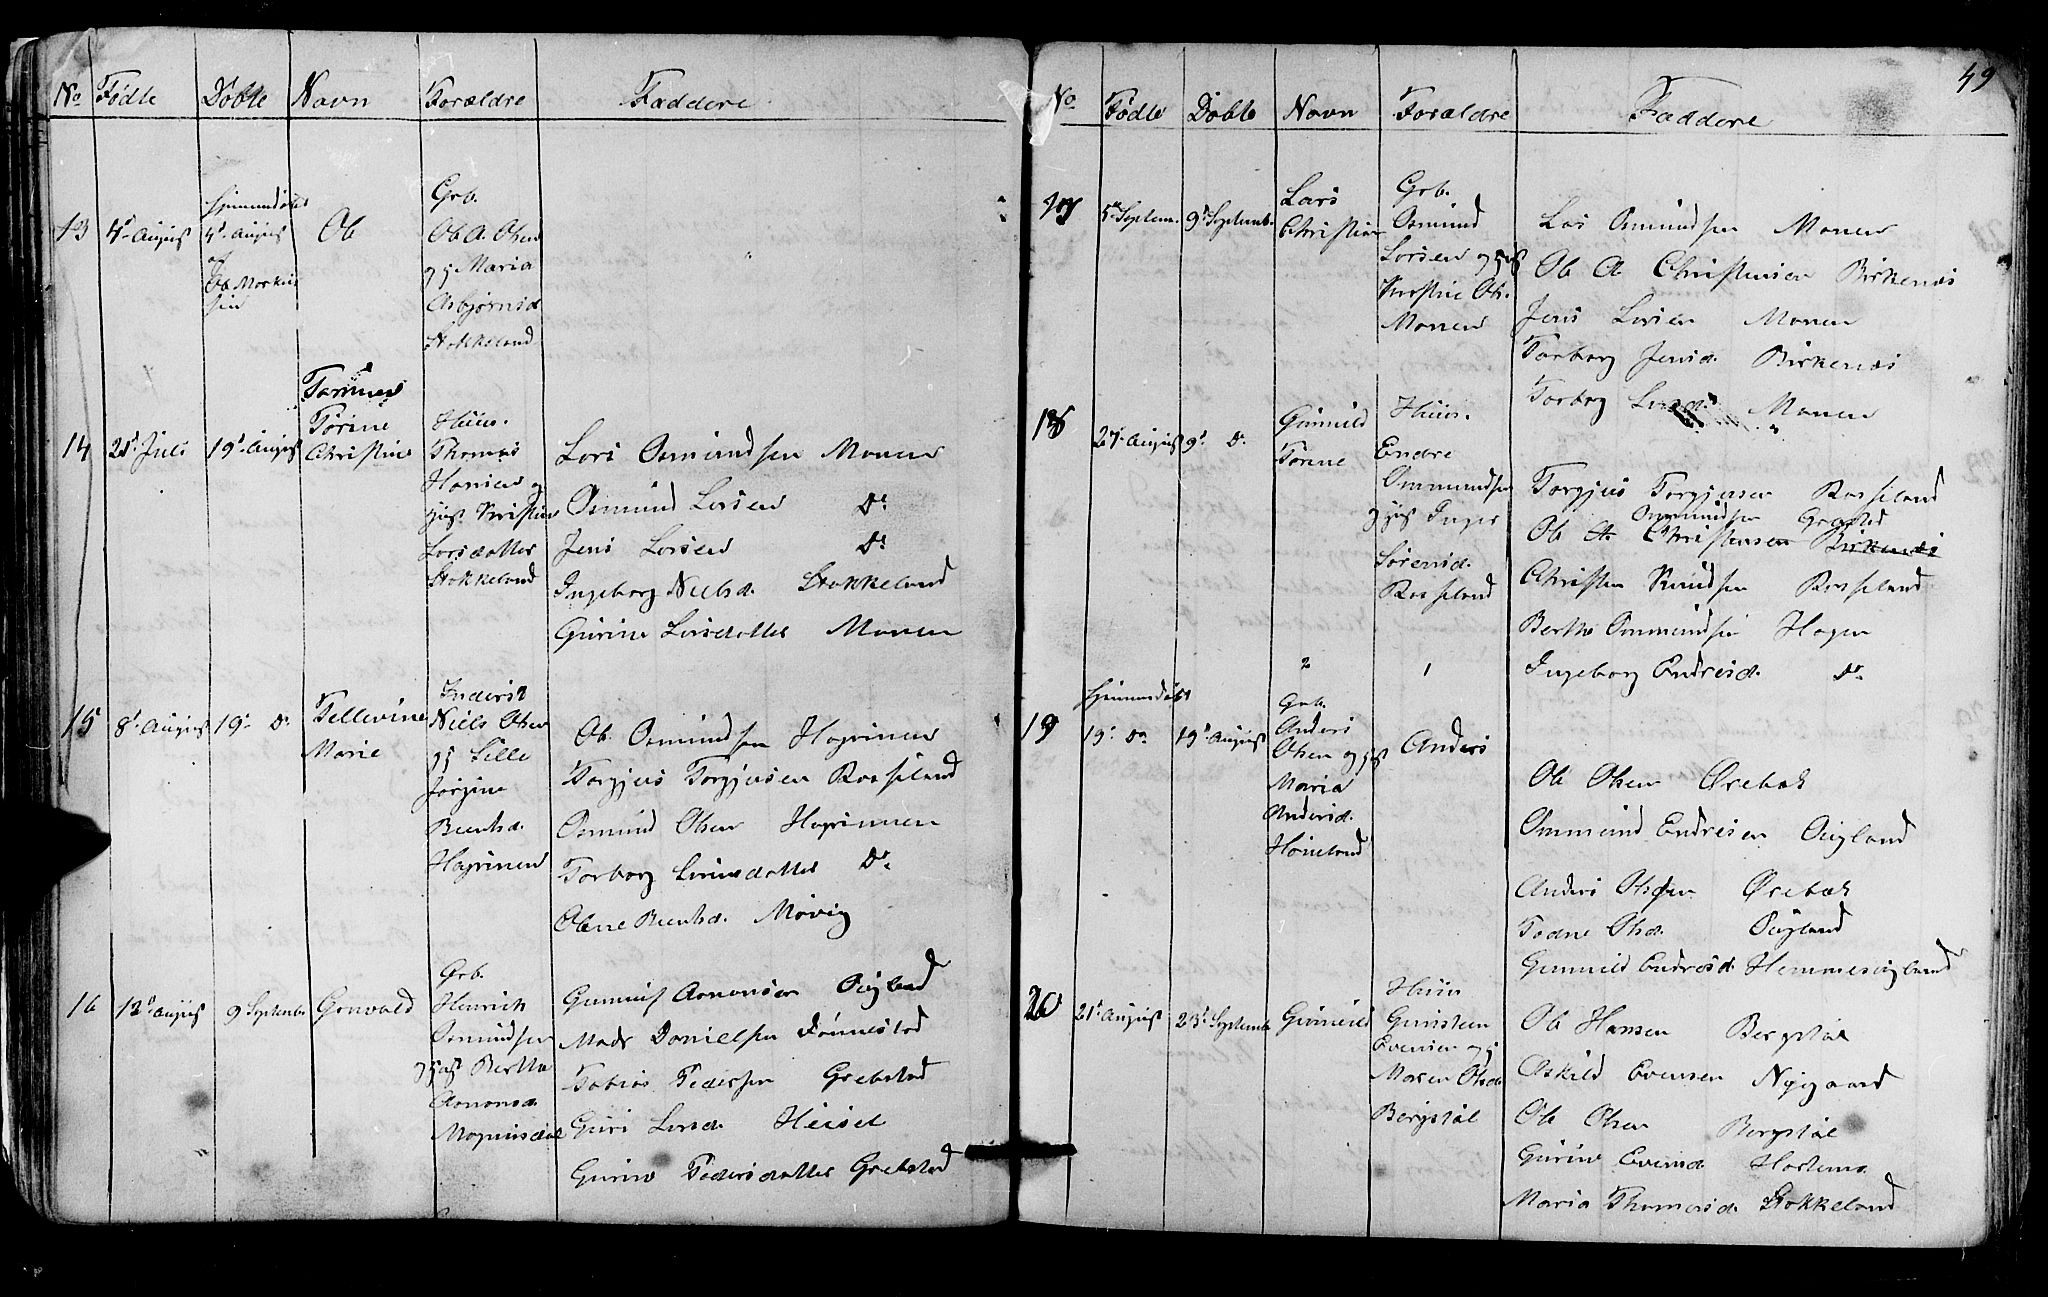 No Fødte Døbte Navn Forældre Faddere
13 4de August
Hjemmedøbt
4de August
af
Ob Markus
sen
Ob
Grb.
Ob A. Olsen
og h Maria
Asbjørnsd
Stokkeland
14 21d Juli 19d August
Tørine
Christine
Huus.
Thomas
Hansen og
hust Kirstine
Larsdatter
Stokkeland
Lars Osmundsen Monen
Osmund Larsen Do
Jens Larsen Do
Ingeborg Nielsd. Stokkeland
Gurine Larsdatter Monen
15 8d August 19d Do
Tellevine
Marie
Inderst
Niels Olsen
og h Sille
Jørgine
Berntsd.
Høgrinen
Ob. Osmundsen Høgrinen
Torgjus Torgjusen Rosseland
Osmund Olsen Høgrinen
Torborg Do
Oline Berntsd. Møvig
16 12d August 9 Septembr Gonvald
Grb.
Henrik
Osmundsen
og hust Berthe
Aanonsd
Mognusdal
Gunnuf Aanonsen Øigland
Mads Danielsen Dønnestad
Tobias Pedersen Grebstad
Guri Larsd Heisel
Gurine Pedersdatter Grebstad
49
No Fødte Døbte Navn Forældre Faddere
17 5te Septem. 9d Septemb.
Lars
Christian
Grb.
Osmund
Larsen og hust
Kirstine Ols.
Monen
Lars Osmundsen Monen
Ob A Christensen Birkenes
Jens Larsen Monen
Torborg Jensd. Birkenes
Torborg Larsd. Monen
18 27d August 9d Do
Gunnild
Tonne
Huus.
Endre
Ommundsen
og hust Inger
Sørensd.
Rosseland
Torgjus Torgjusen Rosseland
Ommundsen Grøsted
Ob A Christensen Birkenes
Christen Knudsen Rosseland
Berthe Ommundsen Hagen
Ingeborg Endresd. Do
2 1
19
Hjemmedøbt
19d Do 19d August
Grb.
Anders
Olsen og hust
Maria
Andersd.
Høneland
Anders
Ob Olsen Ørebek
Ommund Endresen Øigland
Anders Olsen Ørebek
Todne Olsd. Øigland
Gunnild Endresd. Hemmesøigland
20 21d August 23d Septemb Gunnild
Huus
Gunsteen
Evensen og h
Maren Olsd.
Bergstøl
Ob Hansen Bergstøl
Oskild Evensen Nygaard
Ob Olsen Bergstøl
Gurine Evensd
Maria Thomasd. Stokkeland